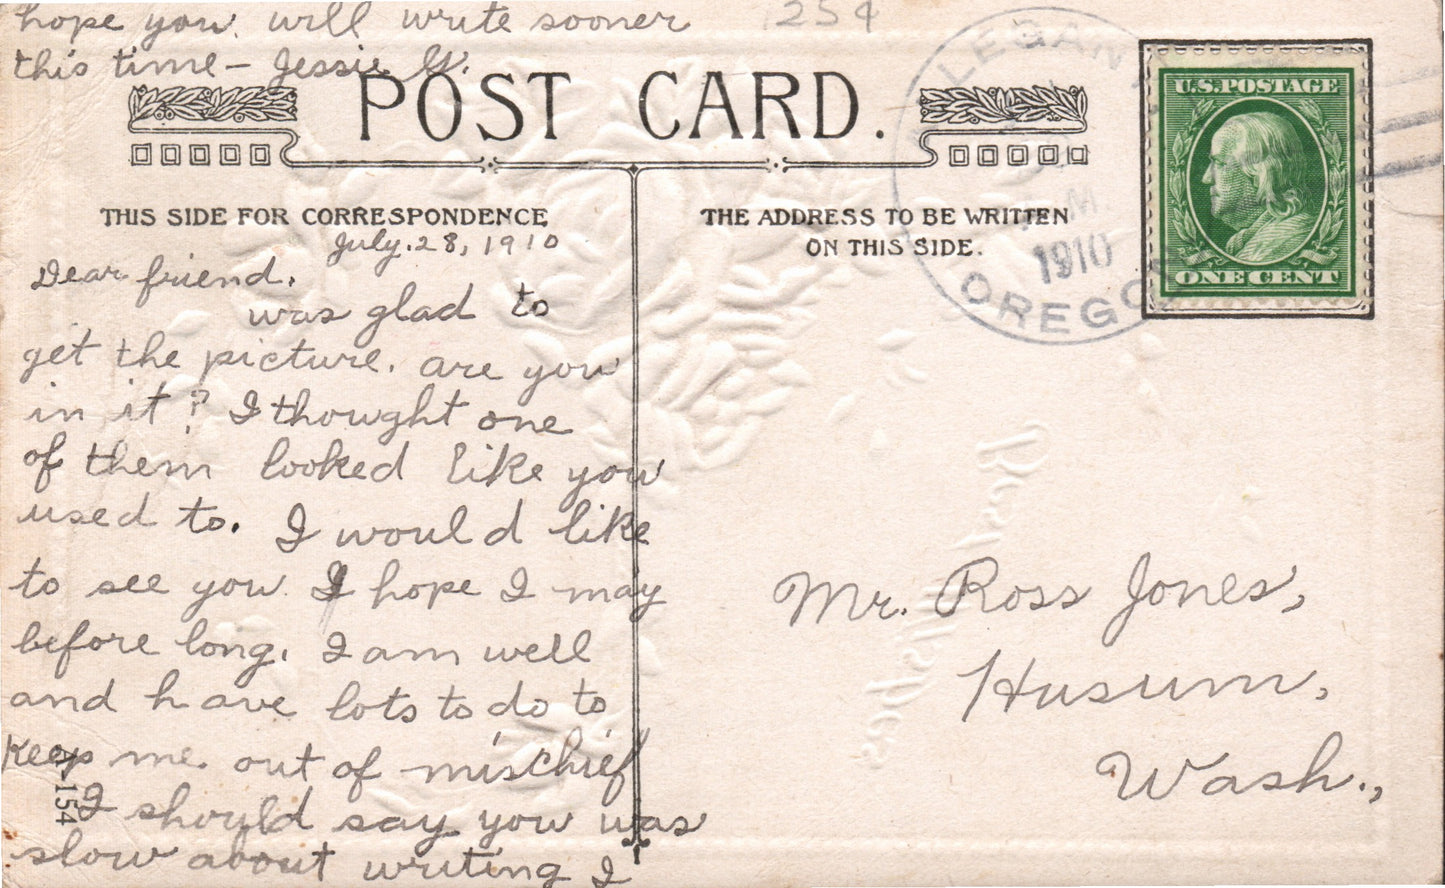 hope you will write sooner
this time — Jessie G.
1254
POST CARD.
THIS SIDE FOR CORRESPONDENCE
THE ADDRESS TO BE WRITTEN
ON THIS SIDE.
July. 28, 1910
Dear friend,
was glad to
get the picture. are you
in it? I thought one
of them looked like you
used to. I would like
to see you. I hope I may
before long. I am well
and have lots to do to
keep me out of mischief
I should say you was
slow about writing I
154
LEGAN
M.
1910
OREGO
U.S. POSTAGE
ONE CENT
Mr. Ross Jones,
Husum,
Wash.,
Best Wishes